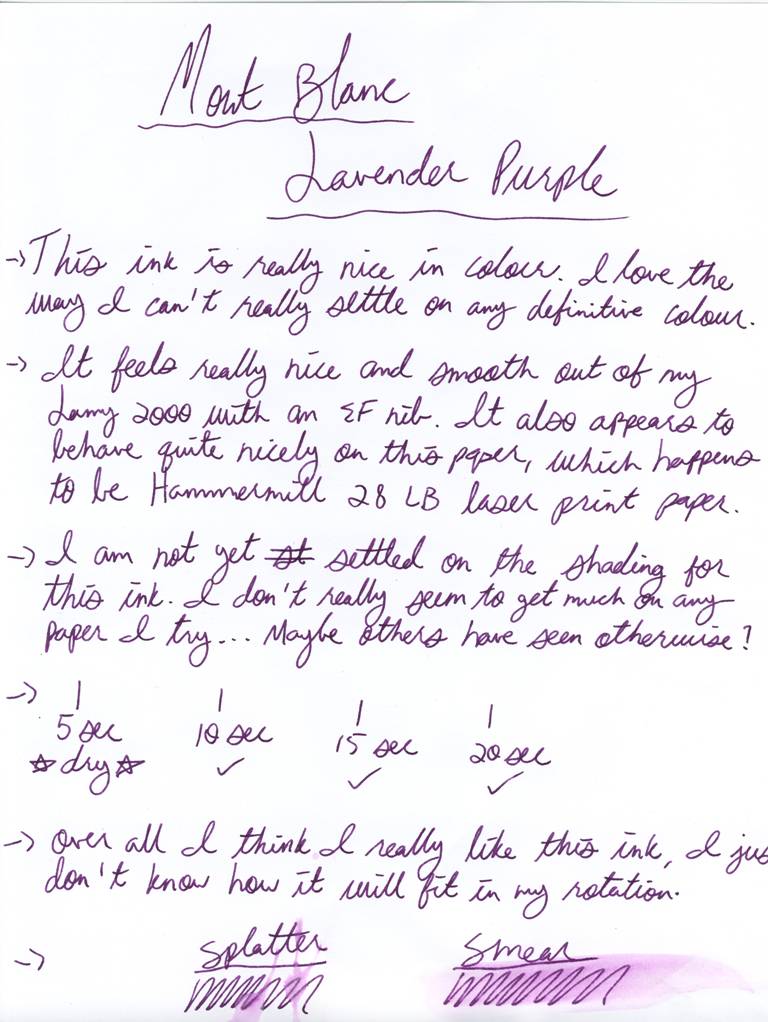 Mont Blanc
Lavender Purple
→ This ink is really nice in colour. I love the
way I can't really settle on any definitive colour.
→ It feels really nice and smooth out of my
Lamy 2000 with an EF nib. It also appears to
behave quite nicely on this paper, which happens
to be Hammermill 28 LB laser print paper.
→ I am not yet st settled on the shading for
this ink. I don't really seem to get much on any
paper I try... Maybe others have seen otherwise?
→ | | | |
5 sec 10 sec 15 sec 20 sec
☆ dry ☆ ✓ ✓ ✓
→ Over all I think I really like this ink, I jus
don't know how it will fit in my rotation.
→ Splatter Smear